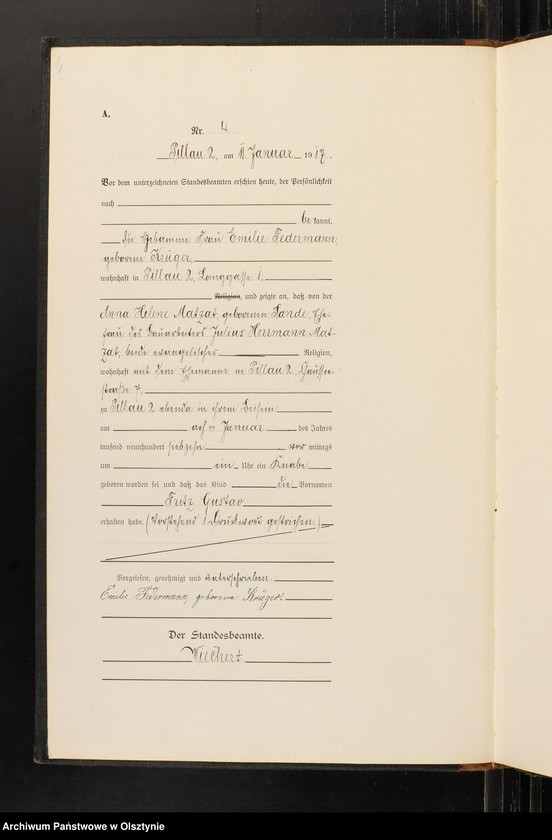 A.
Nr. 4
Pillau 2, am 11. Januar 1917.
Vor dem unterzeichneten Standesbeamten erschien heute, der Persönlichkeit
nach
bekannt,
die Hebamme Frau Emilie Federmann,
geborene Krüger,
wohnhaft in Pillau 2, Langgasse 1,
Religion, und zeigte an, daß von der
Anna Helene Matzat, geborenen Sande, Ehe-
frau des Bauarbeiters Julius Herrmann Mat-
zat, beide evangelischer Religion,
wohnhaft mit dem Ehemanne in Pillau 2, Chaussee-
straße 7,
zu Pillau 2 ebenda in ihrem Beisein
am acht Januar des Jahres
tausend neunhundert siebzehn vormittags
um ein Uhr ein Knabe
geboren worden sei und daß das Kind die Vornamen
Fritz Gustav
erhalten habe. (Vorstehend 1 Druckwort gestrichen.)
Vorgelesen, genehmigt und unterschrieben.
Emilie Federmann, geborene Krüger.
Der Standesbeamte.
Wuchert
Archiwum Państwowe w Olsztynie